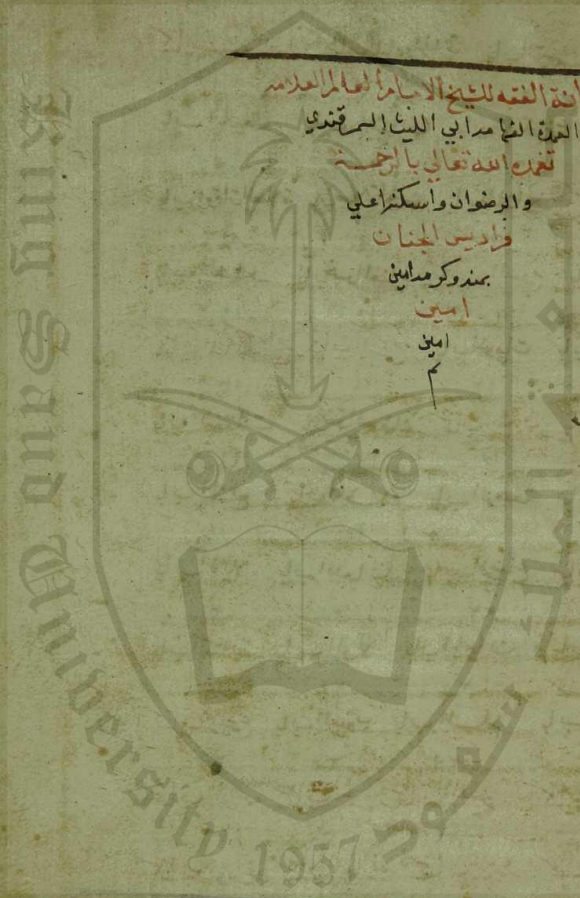 انة الفقه للشيخ الامام العالم العلامه
العمدة الفهامه ابي الليث السمرقندي
تغمده الله تعالي بالرحمة
والرضوان واسكنه اعلي
فراديس الجنان
بمنه وكرمه امين
امين
امين
م
King Saud University
1957
جامعة الملك سعود